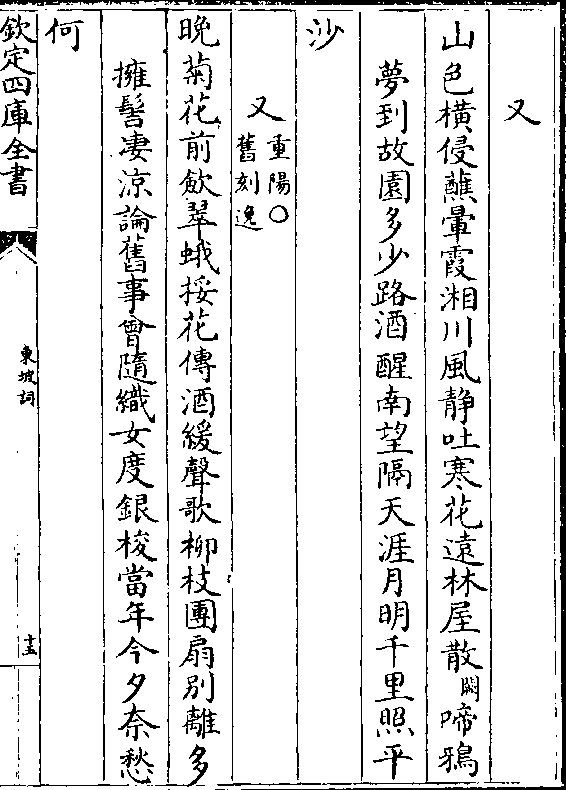 又
山色橫侵蘸暈霞湘川風静吐寒花遠林屋散闕啼鴉
夢到故園多少路酒醒南望隔天涯月明千里照平
沙
又重陽〇舊刻逸
晚菊花前歛翠蛾挼花傳酒緩聲歌柳枝團扇别離多
擁髻淒涼論舊事曾隨織女度銀梭當年今夕奈愁
何
欽定四庫全書
東坡詞
十五